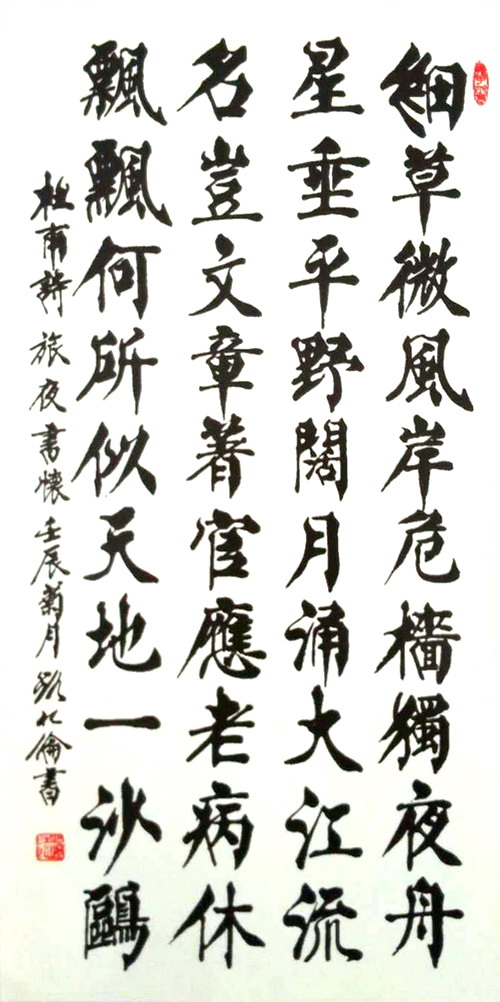 細草微風岸危檣獨夜舟
星垂平野闊月涌大江流
名豈文章著官應老病休
飄飄何所似天地一沙鷗
杜甫詩旅夜書懷壬辰菊月倫書